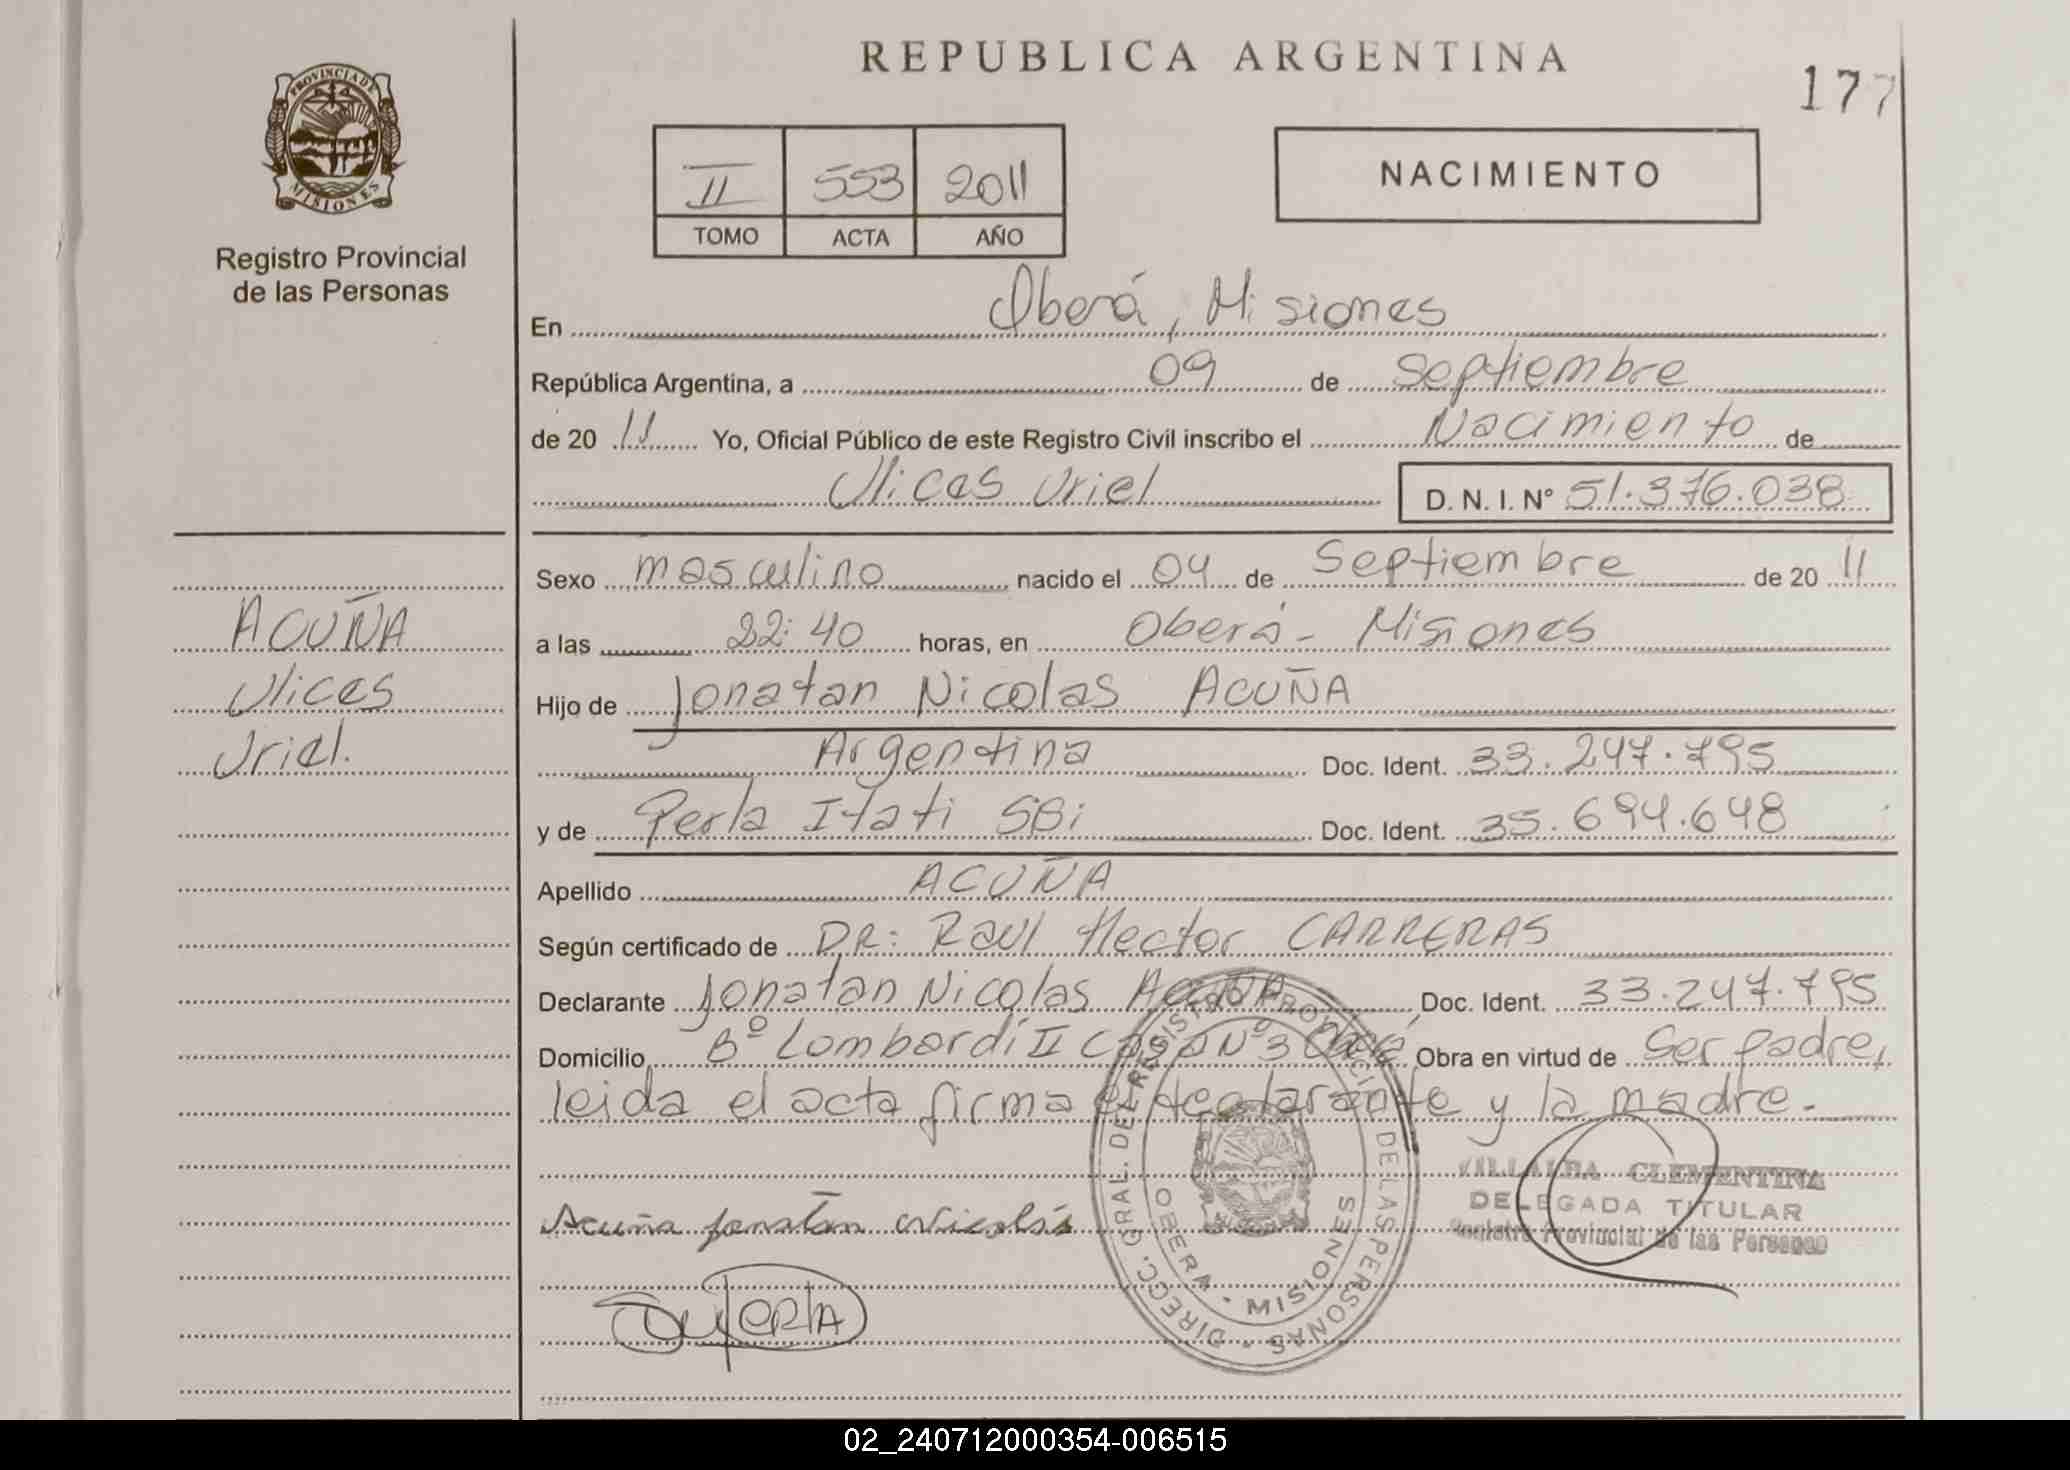 REPUBLICA ARGENTINA
177
PROVINCIA DE
MISIONES
Registro Provincial
de las Personas
II 553 2011
TOMO ACTA AÑO
NACIMIENTO
En Oberá, Misiones
República Argentina, a 09 de Septiembre
de 20 11 Yo, Oficial Público de este Registro Civil inscribo el Nacimiento de
Ulices Uriel D. N. I. Nº 51.376.038
ACUÑA
Ulices
Uriel.
Sexo masculino nacido el 04 de Septiembre de 20 11
a las 22:40 horas, en Oberá - Misiones
Hijo de Jonatan Nicolas ACUÑA
Argentina Doc. Ident. 33.247.795
y de Perla Itati SBi Doc. Ident. 35.694.648
Apellido ACUÑA
Según certificado de DR: Raul Hector CARRERAS
Declarante Jonatan Nicolas ACUÑA Doc. Ident. 33.247.795
Domicilio Bº Lombardi II Casa Nº 3 Oberá Obra en virtud de Ser padre,
leida el acta firma el declarante y la madre.
VILLALBA CLEMENTINA
DELEGADA TITULAR
Registro Provincial de las Personas
Acuña Jonatan Nicolás
Perla
DIRECC. GRAL. DEL REGISTRO PROVINCIAL DE LAS PERSONAS
OBERA - MISIONES
02_240712000354-006515